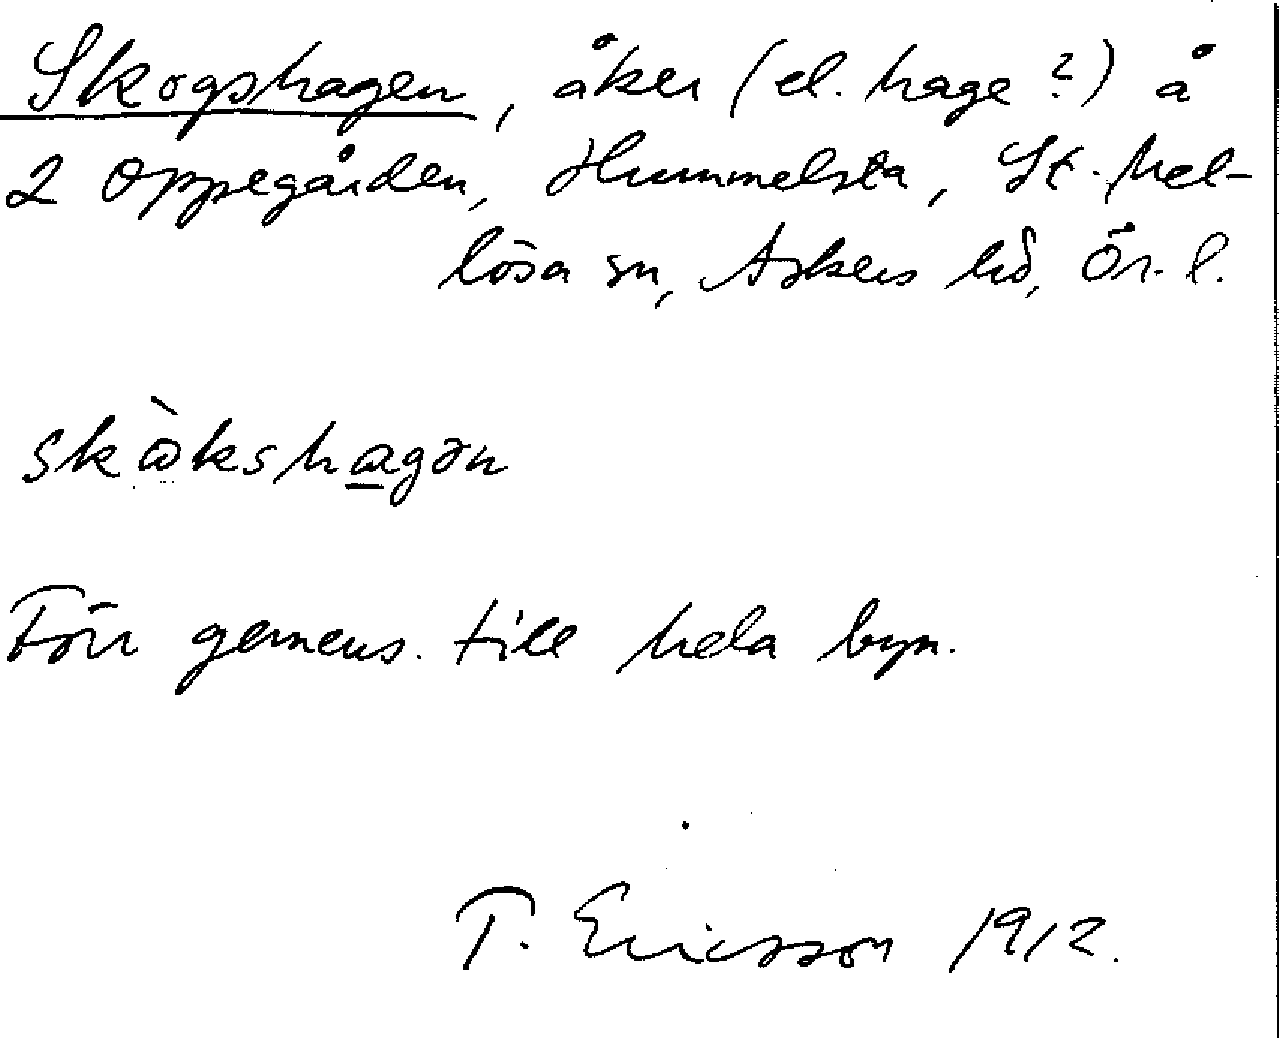 Skogshagen, åker (el. hage?) å
2 Oppegården, Hummelsta, St. Mel-
lösa sn, Askers hd, Ör. l.
skɷ̀kshagən
Förr gemens. till hela byn.
T. Ericsson 1912.